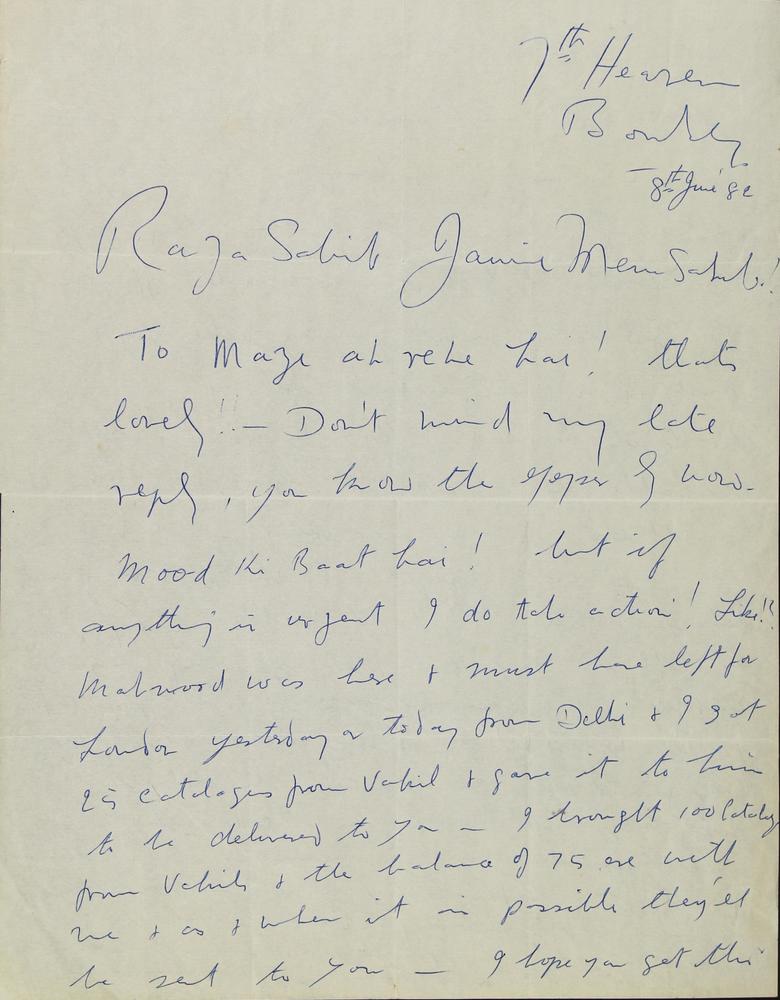 7th Heaven
Bombay
8th June 82
Raza Sahib Janine Mem Sahib!
To Maze ah rehe hai! thats
lovely!! — Don't mind my late
reply, you know the by now.
Mood Ki Baat hai! but if
anything is urgent I do take action! Like!!
Mahmood was here & must have left for
London yesterday or today from Delhi & I got
25 catalages from Vakil & gave it to him
to be delivered to you — I brought 100 Catalog
from Vakils & the balance of 75 are with
me & as & when it is possible they'el
be sent to you — I hope you get this